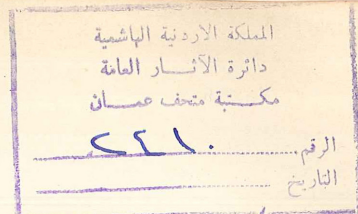 المملكة الاردنية الهاشمية
دائرة الآثار العامة
مكتبة متحف عمان
الرقم ٢٤١٠
التاريخ